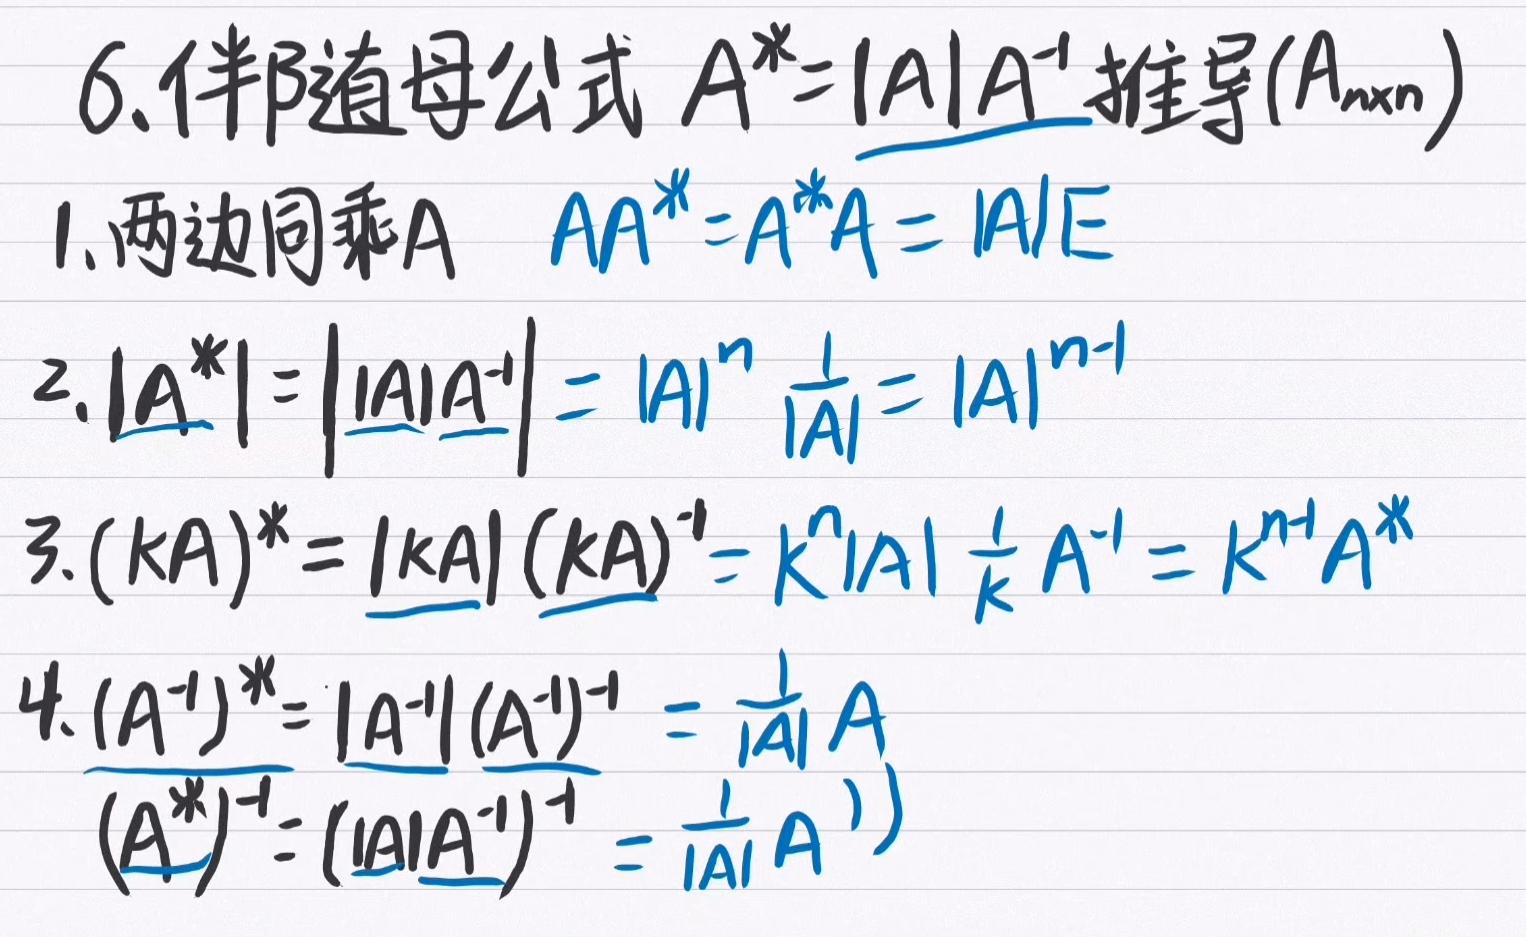 6.伴随母公式 A*=|A|A⁻¹推导(Aₙₓₙ)
1.两边同乘A AA*=A*A=|A|E
2.|A*|=||A|A⁻¹|=|A|ⁿ 1/|A|=|A|ⁿ⁻¹
3.(kA)*=|kA|(kA)⁻¹=kⁿ|A| 1/k A⁻¹=kⁿ⁻¹A*
4.(A⁻¹)*=|A⁻¹|(A⁻¹)⁻¹=1/|A| A
(A*)⁻¹=(|A|A⁻¹)⁻¹=1/|A| A